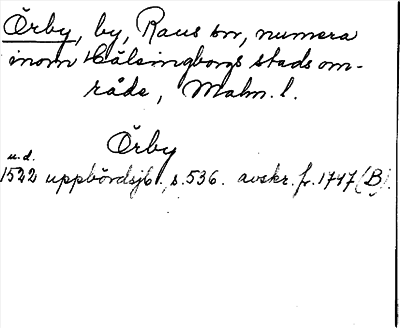 Örby, by, Raus sn, numera
inom Hälsingborgs stadsom-
råde, Malm. l.
Örby
u.d.
1522 uppbördsjb. s. 536. avskr. fr. 1747 (B).